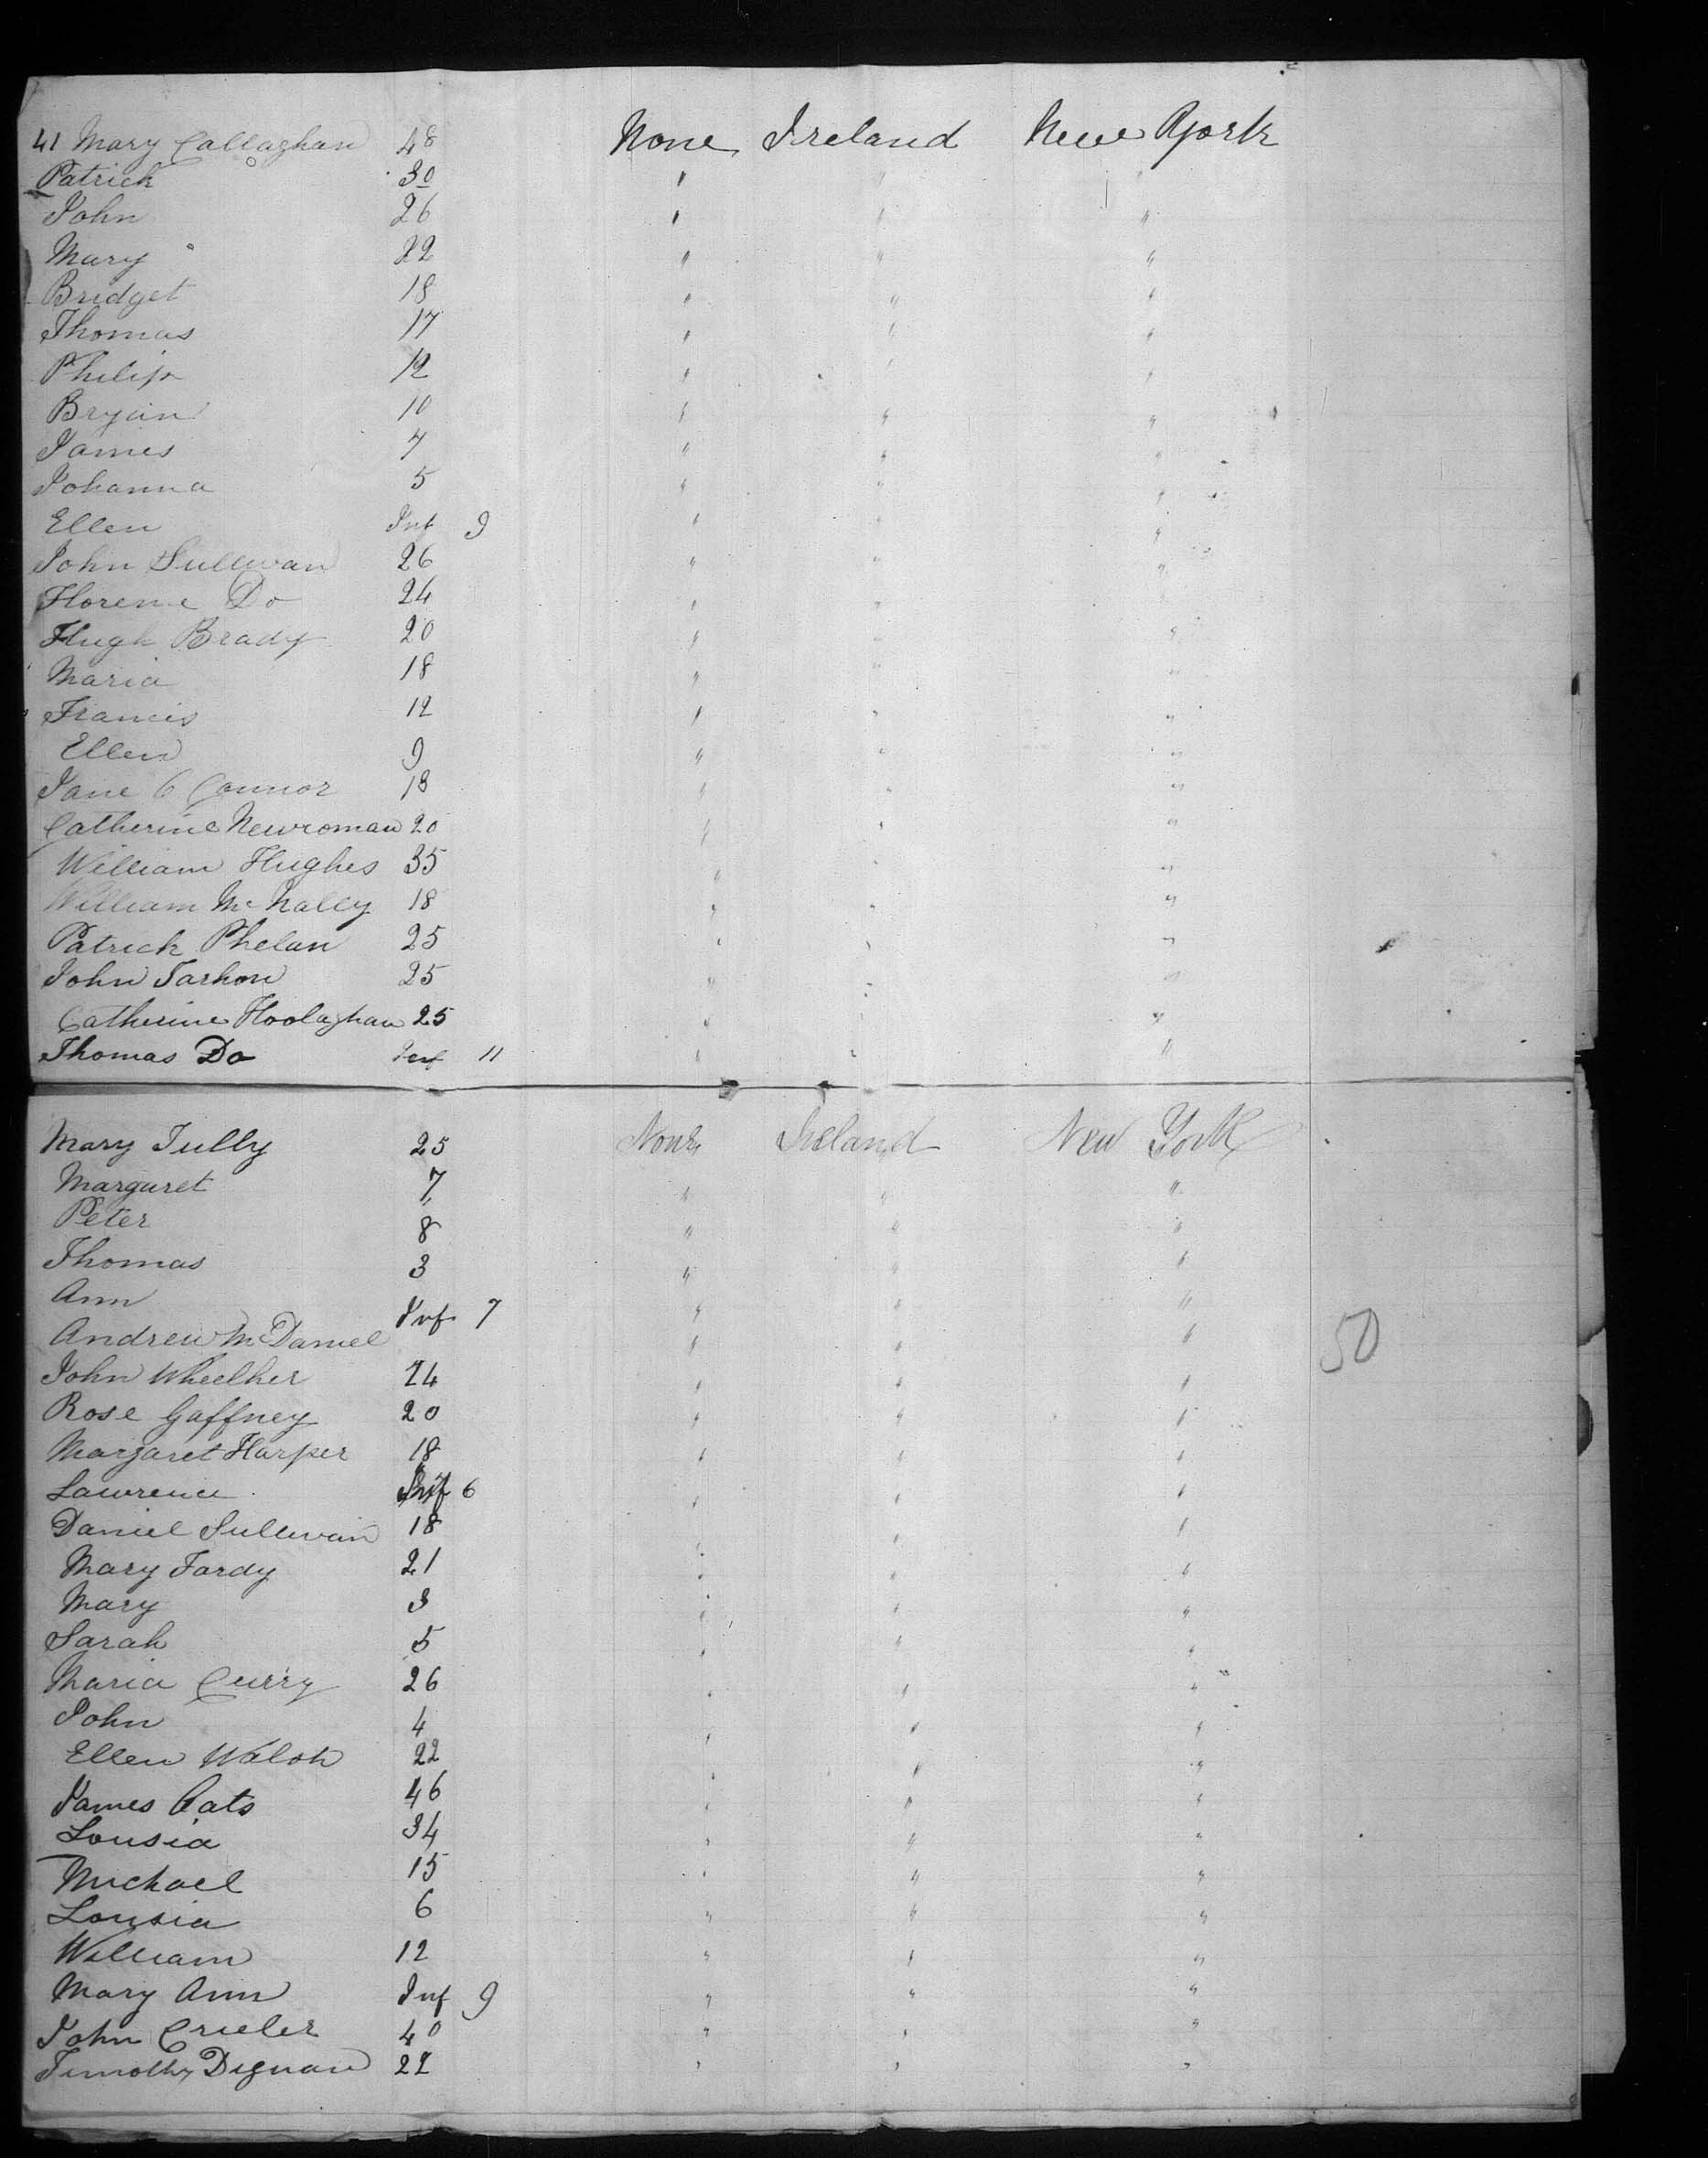 41 Mary Callaghan 48 None Ireland New York
Patrick 30 " " "
John 26 " " "
Mary 22 " " "
Bridget 18 " " "
Thomas 17 " " "
Philip 12 " " "
Bryan 10 " " "
James 7 " " "
Johanna 5 " " "
Ellen Inf 9 " " "
John Sullivan 26 " " "
Florence Do 24 " " "
Hugh Brady 20 " " "
Maria 18 " " "
Francis 12 " " "
Ellen 9 " " "
Jane O Connor 18 " " "
Catherine Newroman 20 " " "
William Hughes 35 " " "
William McNally 18 " " "
Patrick Phelan 25 " " "
John 25 " " "
Catherine Hoolaghan 25 " " "
Thomas Do Inf 11 " " "
Mary Tully 25 None Ireland New York
Margaret 7 " " "
Peter 8 " " "
Thomas 3 " " "
Ann Inf 7 " " "
Andrew McDaniel " " "
John Wheelher 24 " " "
Rose Gaffney 20 " " "
Margaret Harper 18 " " "
Lawrence Inf 6 " " "
Daniel Sullivan 18 " " "
Mary Fardy 21 " " "
Mary 3 " " "
Sarah 5 " " "
Maria Curry 26 " " "
John 4 " " "
Ellen Walsh 22 " " "
James Cats 46 " " "
Lousia 34 " " "
Michael 15 " " "
Lousia 6 " " "
William 12 " " "
Mary Ann Inf 9 " " "
John Crieler 40 " " "
Timothy Dignan 22 " " "
50